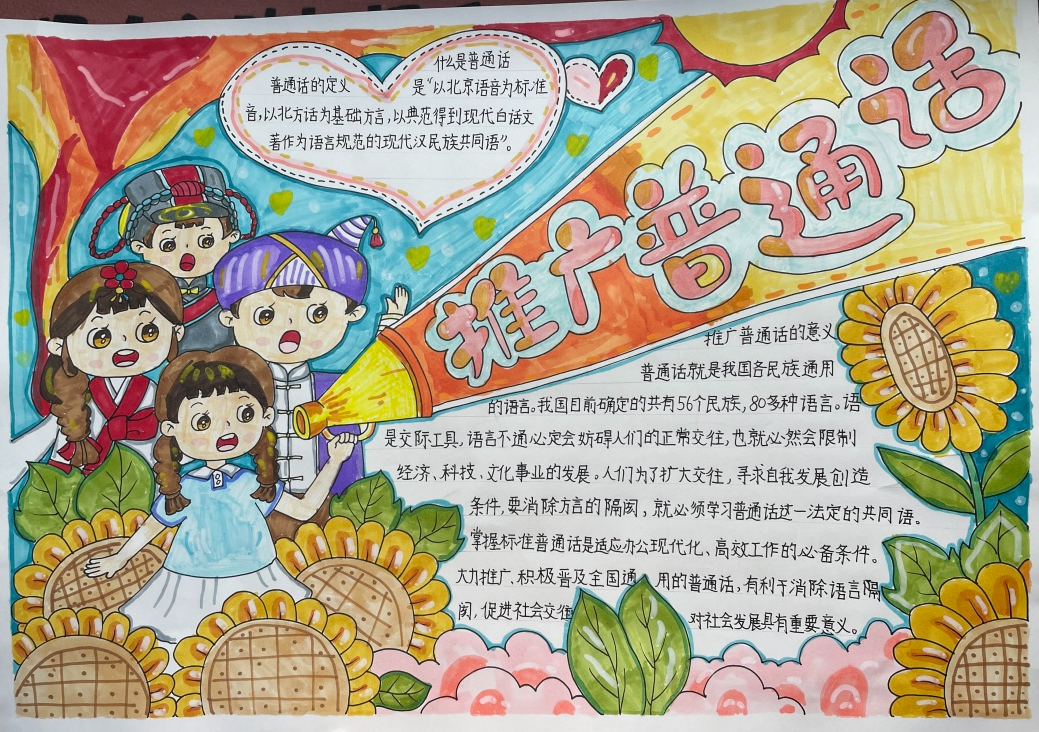 推广普通话
什么是普通话
普通话的定义 是“以北京语音为标准
音,以北方话为基础方言,以典范得到现代白话文
著作为语言规范的现代汉民族共同语”。
推广普通话的意义
普通话就是我国各民族通用
的语言。我国目前确定的共有56个民族,80多种语言。语
是交际工具,语言不通必定会妨碍人们的正常交往,也就必然会限制
经济、科技、文化事业的发展。人们为了扩大交往,寻求自我发展创造
条件,要消除方言的隔阂,就必须学习普通话这一法定的共同语。
掌握标准普通话是适应办公现代化、高效工作的必备条件。
大力推广、积极普及全国通用的普通话,有利于消除语言隔
阂,促进社会交往 对社会发展具有重要意义。